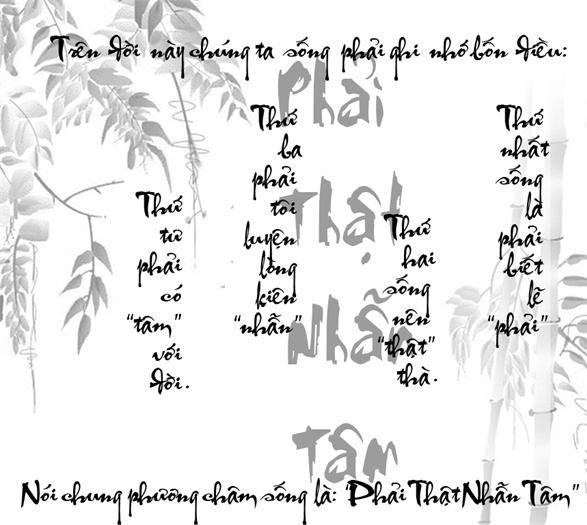 Trên đời này chúng ta sống phải ghi nhớ bốn điều:
Phải
Thật
Nhẫn
Tâm
Thứ
nhất
sống
là
phải
biết
lẽ
"phải"
Thứ
hai
sống
nên
"thật"
thà.
Thứ
ba
phải
tôi
luyện
lòng
kiên
"nhẫn"
Thứ
tư
phải
có
"tâm"
với
đời.
Nói chung phương châm sống là: "Phải Thật Nhẫn Tâm"